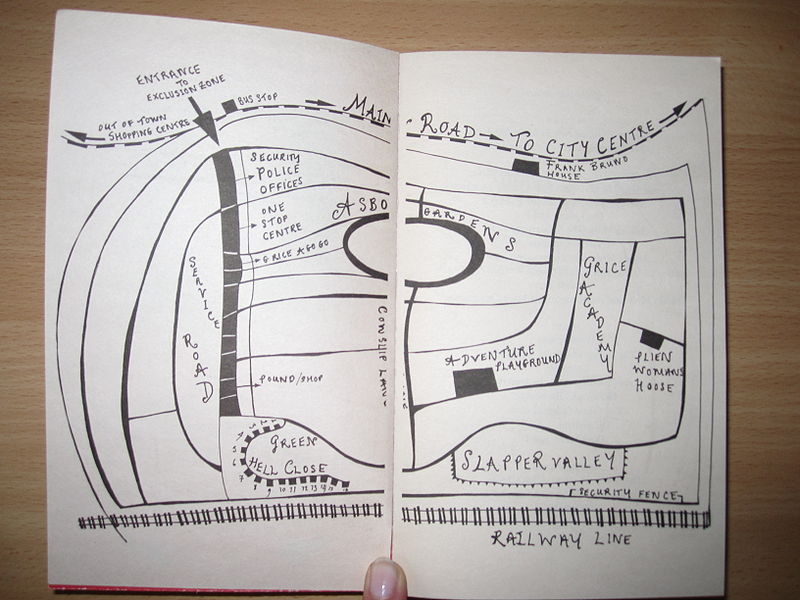 ENTRANCE
TO
EXCLUSION ZONE
BUS STOP
MAIN
ROAD
TO CITY CENTRE
OUT OF TOWN
SHOPPING CENTRE
FRANK BRUNO
HOUSE
SECURITY
POLICE
OFFICES
ONE
STOP
CENTRE
ASBO
GARDENS
GRICE A GOGO
SERVICE
ROAD
GRICE
ACADEMY
COWSHIP LANE
ADVENTURE
PLAYGROUND
PLIEN
WOMANS
HOOSE
POUND/SHOP
GREEN
HELL CLOSE
5
6
7
8 9 10 11 12 13
SLAPPER VALLEY
SECURITY FENCE
RAILWAY LINE